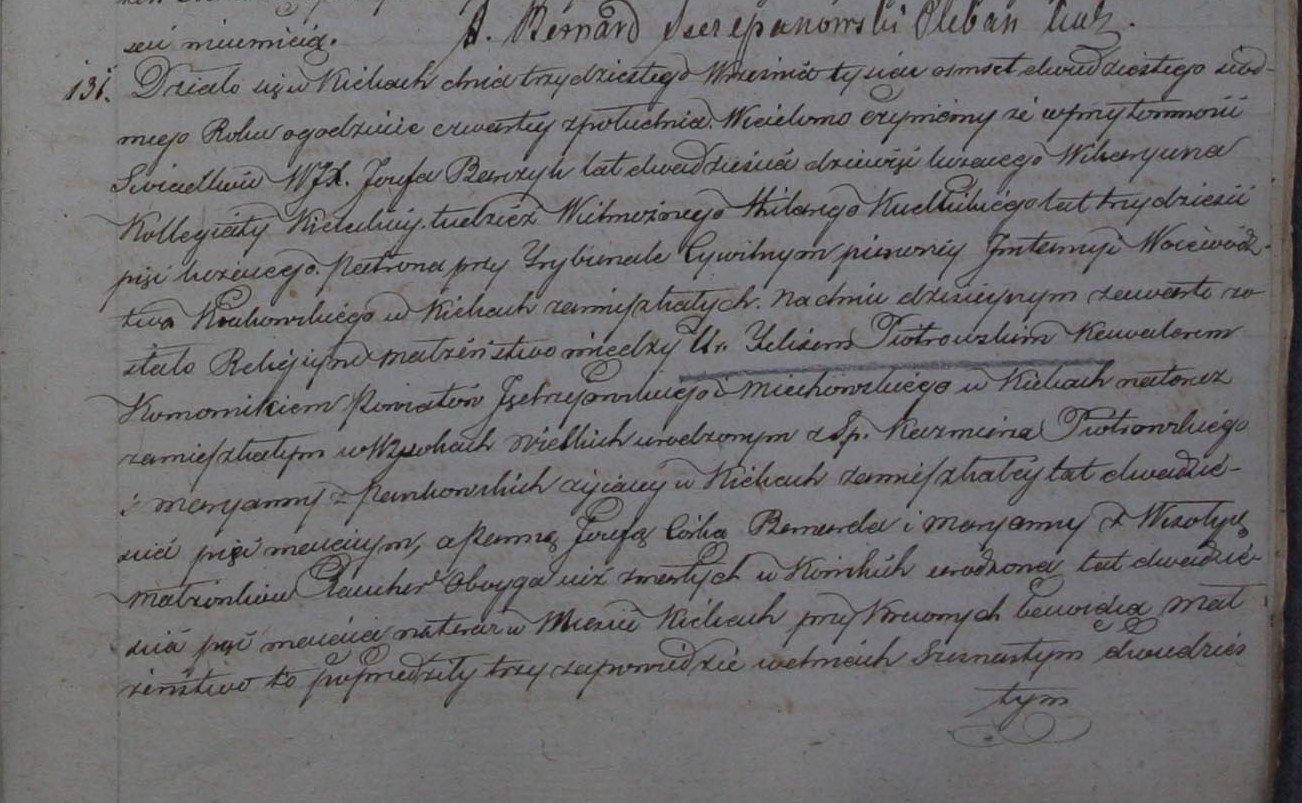 sać nieumieią.
X. Bernard Szczepanowski Pleban
131. Działo się w Kielcach dnia trzydziestego Wrzesnia tysiac osmset dwudziestego siod-
mego Roku o godzinie czwartey z południa. Wiadomo czyniemy że w przytomności
Swiadków WJX. Jozefa Barczyk lat dwadzieścia dziewięć liczącego Wikaryusza
Kollegiaty Kieleckiey tudzież Wielmożnego Hilarego lat trzydzieści
pięć liczącego Patrona przy Trybunale Cywilnym pierwszey Instancyi Wojewódz-
twa Krakowskiego w Kielcach zamieszkałych. Na dniu dzisieyszym zawarte zo-
stało Religijne małżeństwo między Ur. Felixem Piotrowskim Kawalerem
Komornikiem Powiatów Jędrzejowskiego i Miechowskiego w Kielcach na teraz
zamieszkałym w Wysokach Wielkich urodzonym z Sp. Kazmierza Piotrowskiego
i Maryanny z Pankowskich żyiącey w Kielcach zamieszkałey lat dwadzie-
scia pięć maiącym, a Panną Jozefą Córką Bernarda i Maryanny z
Małżonków oboyga iuż zmarłych w Końskich urodzoną lat dwadzie-
scia pięć maiącą na teraz w Mieście Kielcach przy Krewnych bawiącą Mał
żeństwo to poprzedziły trzy zapowiedzie w dniach Szesnastym dwudzies
tym